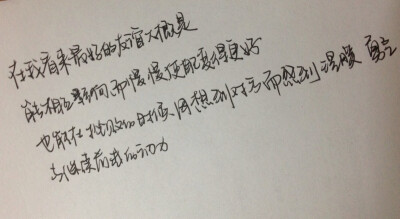 在我看来最好的友谊大概是
能相互影响而慢慢使配变得更好
也能在挫败的时候因想到对方而感到温暖 勇敢
与继续前进的动力